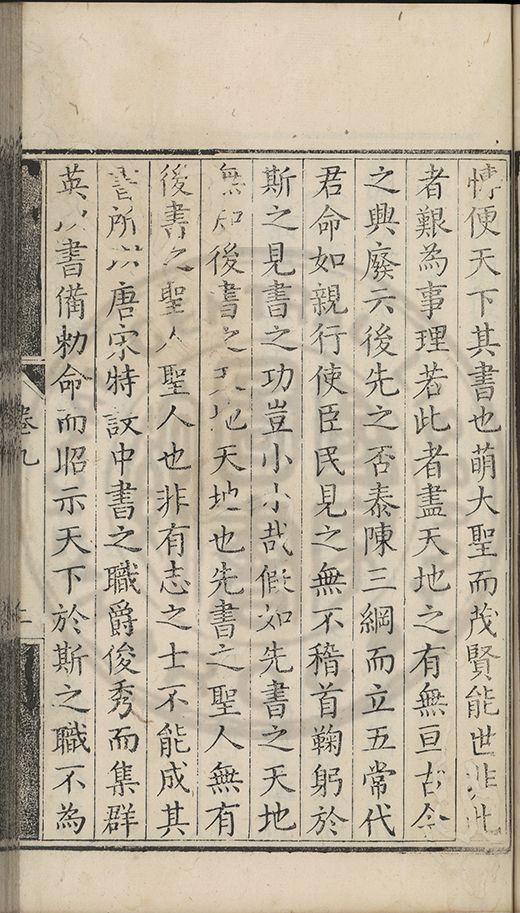 便天下其書也萌大聖而茂賢能世非此
者艱為事理若此者盡天地之有無亘古今
之興廢云後先之否泰陳三綱而立五常代
君命如親行使臣民見之無不稽首鞠躬於
斯之見書之功豈小小哉假如先書之天地
無後書之天地天地也先書之聖人無有
後書之聖人聖人也非有志之士不能成其
書所以唐宋特設中書之職爵俊秀而集群
英以書備勑命而昭示天下於斯之職不為
卷九